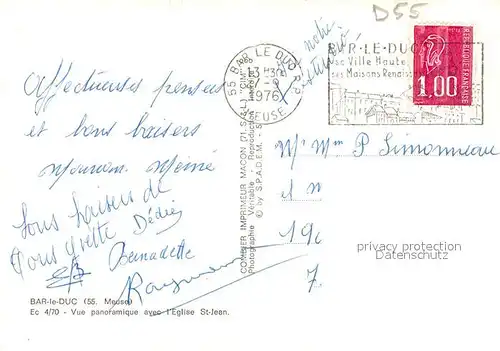 D55
notre
55 BAR LE DUC R.P
13H30
1976
MEUSE
BAR-LE-DUC
sa Ville Haute
ses Maisons Renaiss
REPUBLIQUE FRANÇAISE
1,00
Affectueuses pensées
et bons baisers
Tous baisers de
Dédée
Bernadette
Raymonde
COMBIER IMPRIMEUR MACON (71. S.-&-L.)
Photographie Véritable - Reproduction
© by S.P.A.D.E.M.
M. Mme P Simonneau
et m
19
7.
privacy protection
Datenschutz
BAR-le-DUC (55. Meuse)
Ec 4/70 - Vue panoramique avec l'Eglise St-Jean.